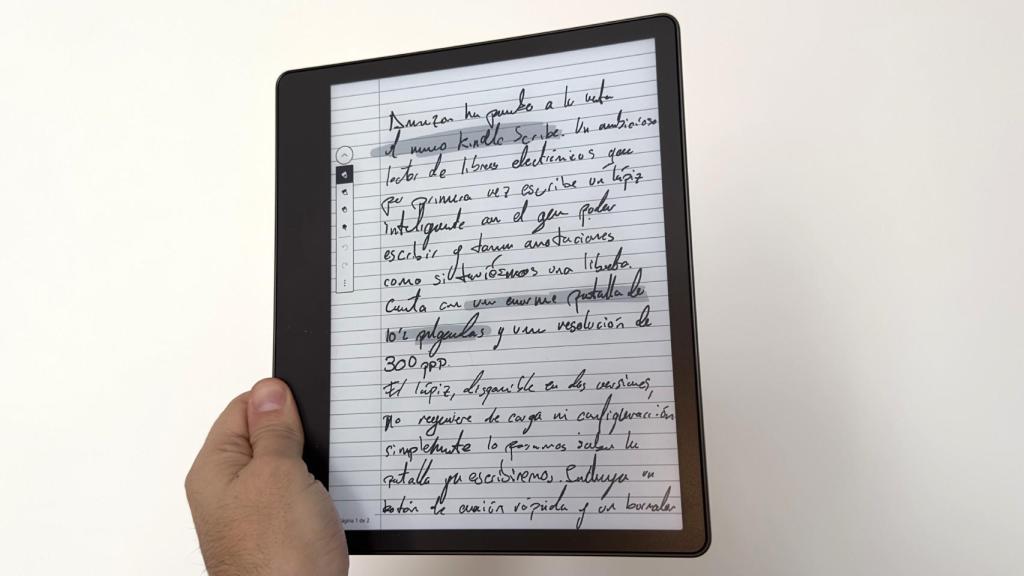 Amazon ha puesto a la venta
el nuevo Kindle Scribe. Un ambicioso
lector de libros electrónicos que
por primera vez escribe un lápiz
inteligente con el que poder
escribir y tomar anotaciones
como si tuviésemos una libreta.
Cuenta con una enorme pantalla de
10'2 pulgadas y una resolución de
300 ppp.
El lápiz, disponible en dos versiones,
no requiere de carga ni configuración
simplemente lo posamos sobre la
pantalla y escribiremos. Incluye un
botón de acción rápida y un borrador
Página 1 de 2